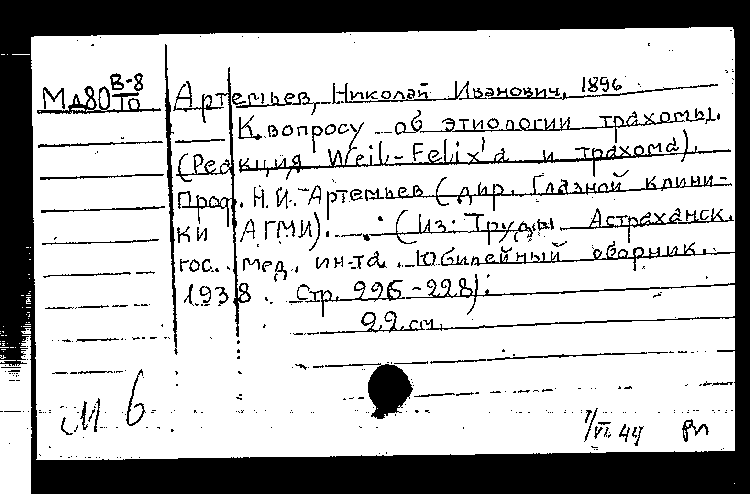 Мд80 В-8/10 Артемьев, Николай Иванович, 1896
К вопросу об этиологии трахомы.
(Реакция Weil-Felix'а и трахома).
Проф. Н.И. Артемьев (дир. Глазной клини-
ки АГМИ). (Из: Труды Астраханск.
гос. мед. ин-та. Юбилейный сборник.
1938. Стр. 226-228).
22 см.
М 6
7/VI. 44